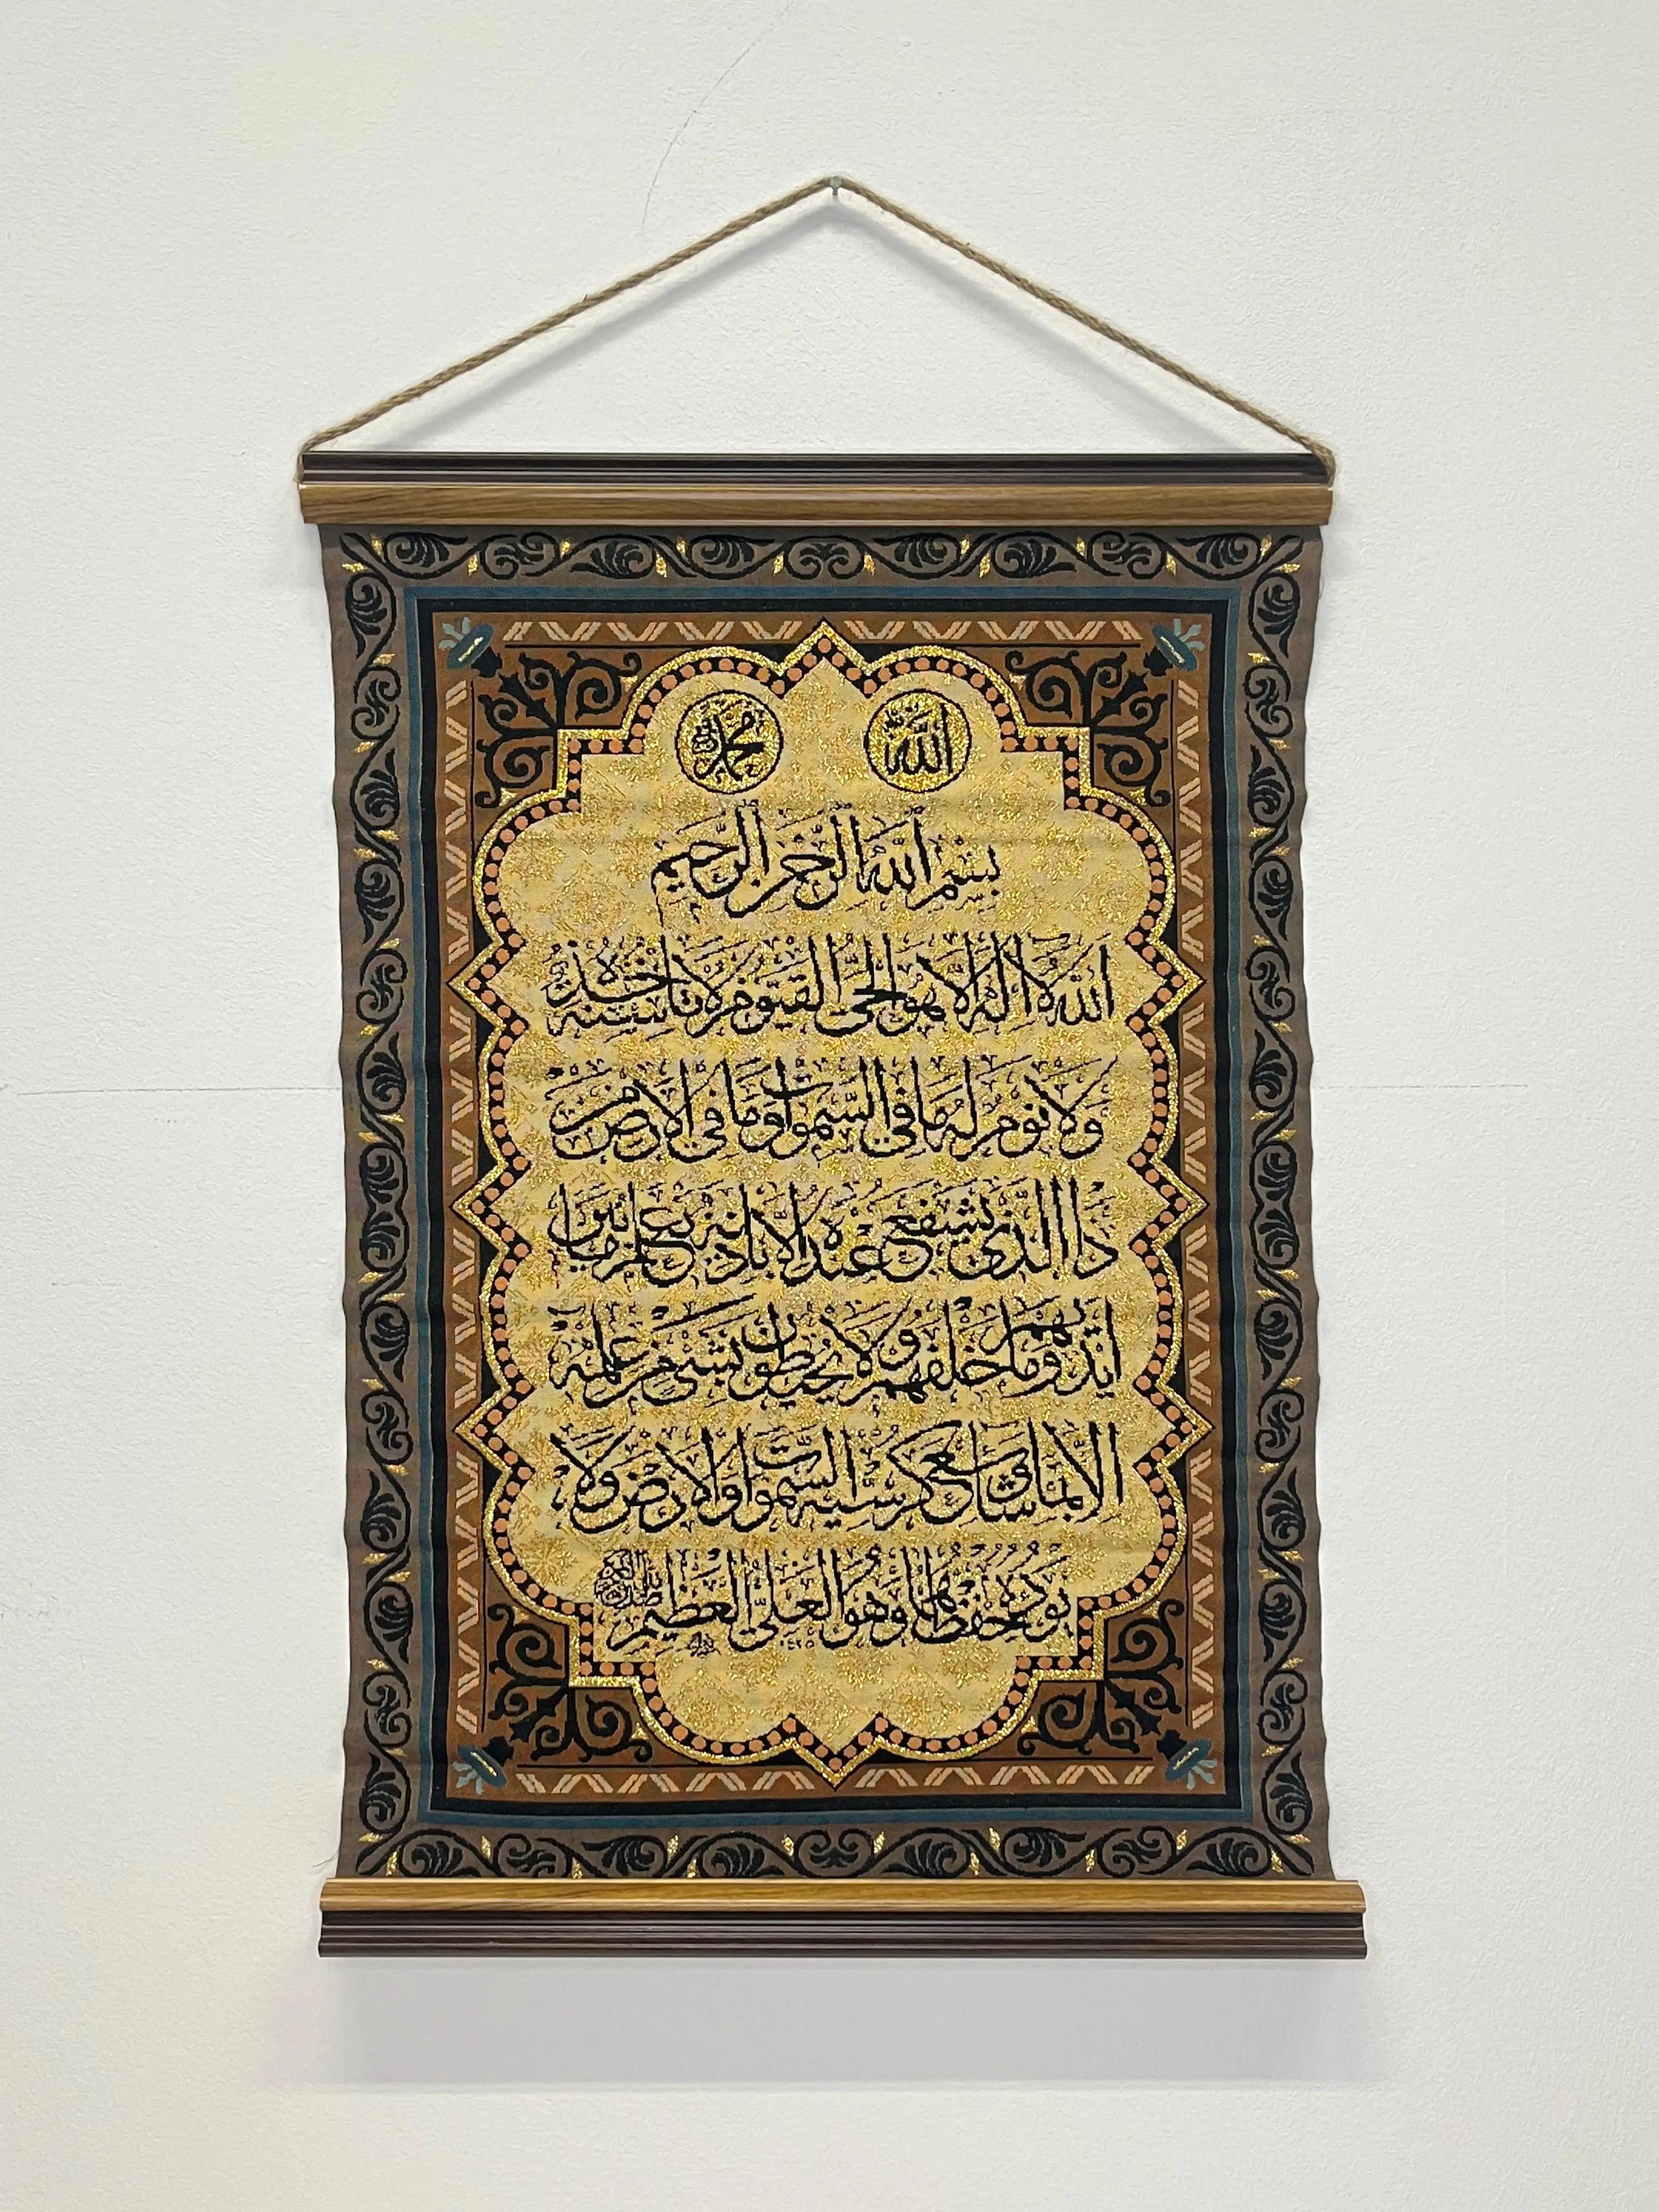 الله
محمد
بسم الله الرحمن الرحيم
الله لا اله الا هو الحي القيوم لا تاخذه سنة
ولا نوم له ما في السموات وما في الارض من
ذا الذي يشفع عنده الا باذنه يعلم ما بين
ايديهم وما خلفهم ولا يحيطون بشيء من علمه
الا بما شاء وسع كرسيه السموات والارض ولا
يؤده حفظهما وهو العلي العظيم